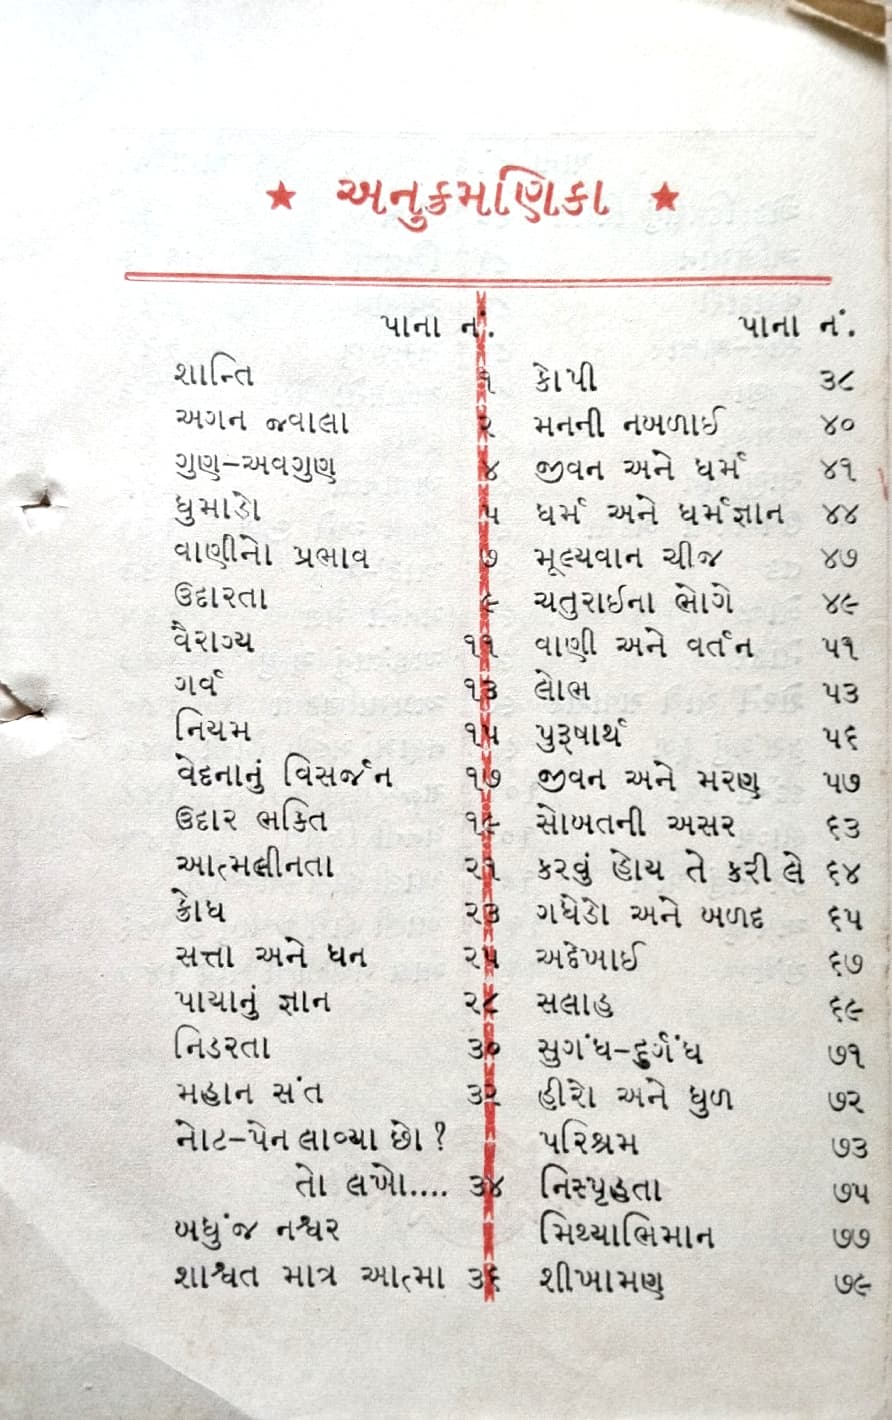 ★ અનુક્રમણિકા ★
પાના નં.
શાન્તિ ૧
અગન જ્વાલા ૨
ગુણ-અવગુણ ૪
ધુમાડો ૫
વાણીનો પ્રભાવ ૭
ઉદારતા ૯
વૈરાગ્ય ૧૧
ગર્વ ૧૩
નિયમ ૧૫
વેદનાનું વિસર્જન ૧૭
ઉદાર ભક્તિ ૧૯
આત્મલીનતા ૨૧
ક્રોધ ૨૩
સત્તા અને ધન ૨૫
પાયાનું જ્ઞાન ૨૮
નિડરતા ૩૦
મહાન સંત ૩૨
નોટ-પેન લાવ્યા છો ?
તો લખો.... ૩૪
બધુંજ નશ્વર
શાશ્વત માત્ર આત્મા ૩૬
પાના નં.
કોપી ૩૮
મનની નબળાઈ ૪૦
જીવન અને ધર્મ ૪૧
ધર્મ અને ધર્મજ્ઞાન ૪૪
મૂલ્યવાન ચીજ ૪૭
ચતુરાઇના ભોગે ૪૯
વાણી અને વર્તન ૫૧
લોભ ૫૩
પુરૂષાર્થ ૫૬
જીવન અને મરણ ૫૭
સોબતની અસર ૬૩
કરવું હોય તે કરી લે ૬૪
ગધેડો અને બળદ ૬૫
અદેખાઈ ૬૭
સલાહ ૬૯
સુગંધ-દુર્ગંધ ૭૧
હીરો અને ધુળ ૭૨
પરિશ્રમ ૭૩
નિસ્પૃહતા ૭૫
મિથ્યાભિમાન ૭૭
શીખામણ ૭૯